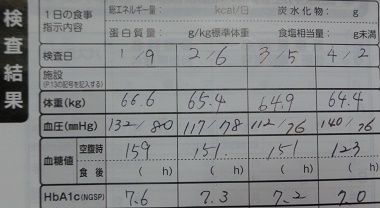 検査結果
1日の食事 総エネルギー量: kcal/日 炭水化物: g
指示内容 蛋白質量: g/kg標準体重 食塩相当量: g未満
検査日 1/9 2/6 3/5 4/2
施設
(P.13の記号を記入する)
体重(kg) 66.6 65.4 64.9 64.4
血圧(mmHg) 132/80 117/78 112/76 140/76
血糖値 空腹時 159 151. 151 123
食後 ( h) ( h) ( h) ( h)
HbA1c(NGSP) 7.6 7.3 7.2 7.0